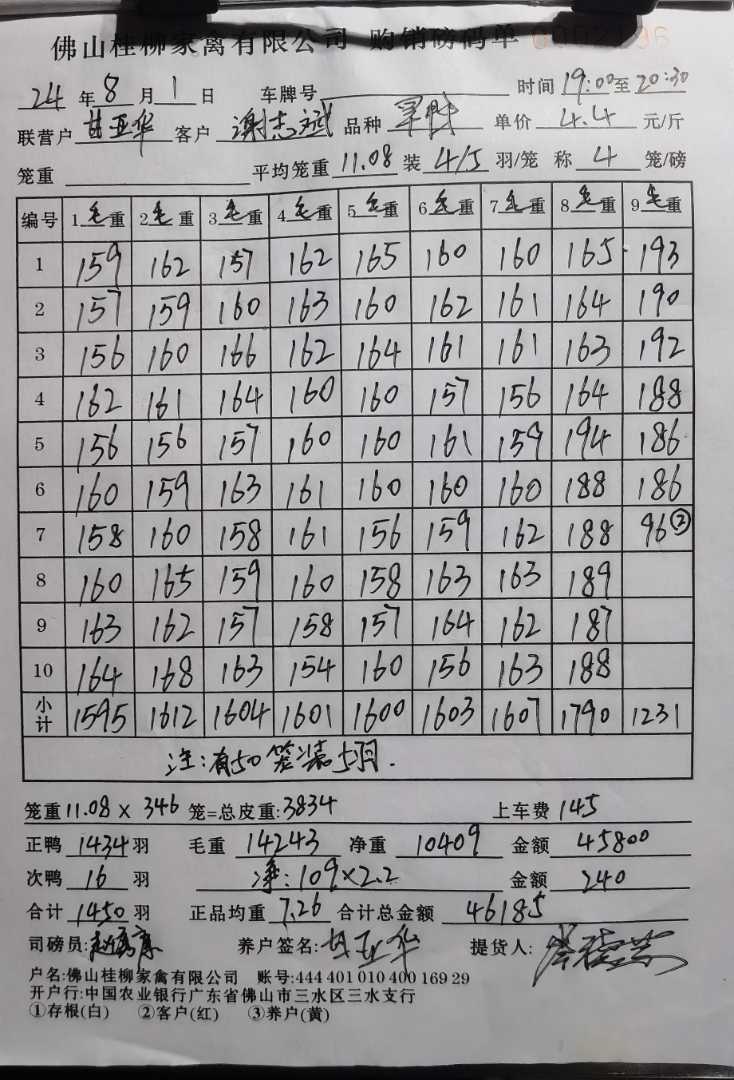 佛山桂柳家禽有限公司 购销磅码单
24 年 8 月 1 日 车牌号 时间 19:00 至 20:30
联营户 甘亚华 客户 谢志斌 品种 单价 4.4 元/斤
笼重 平均笼重 11.08 装 4/5 羽/笼 称 4 笼/磅
编号 1毛重 2毛重 3毛重 4毛重 5毛重 6毛重 7毛重 8毛重 9毛重
1 159 162 157 162 165 160 160 165 193
2 157 159 160 163 160 162 161 164 190
3 156 160 166 162 164 161 161 163 192
4 162 161 164 160 160 157 156 164 188
5 156 156 157 160 160 161 159 194 186
6 160 159 163 161 160 160 160 188 186
7 158 160 158 161 156 159 162 188 96②
8 160 165 159 160 158 163 163 189
9 163 162 157 158 157 164 162 187
10 164 168 163 154 160 156 163 188
小计 1595 1612 1604 1601 1600 1603 1607 1790 1231
注:有50笼装5羽.
笼重 11.08 × 346 笼=总皮重: 3834 上车费 145
正鸭 1434 羽 毛重 14243 净重 10409 金额 45800
次鸭 16 羽 净:109×2.2 金额 240
合计 1450 羽 正品均重 7.26 合计总金额 46185
司磅员: 养户签名: 甘亚华 提货人:
户名:佛山桂柳家禽有限公司 账号:444 401 010 400 169 29
开户行:中国农业银行广东省佛山市三水区三水支行
①存根(白) ②客户(红) ③养户(黄)